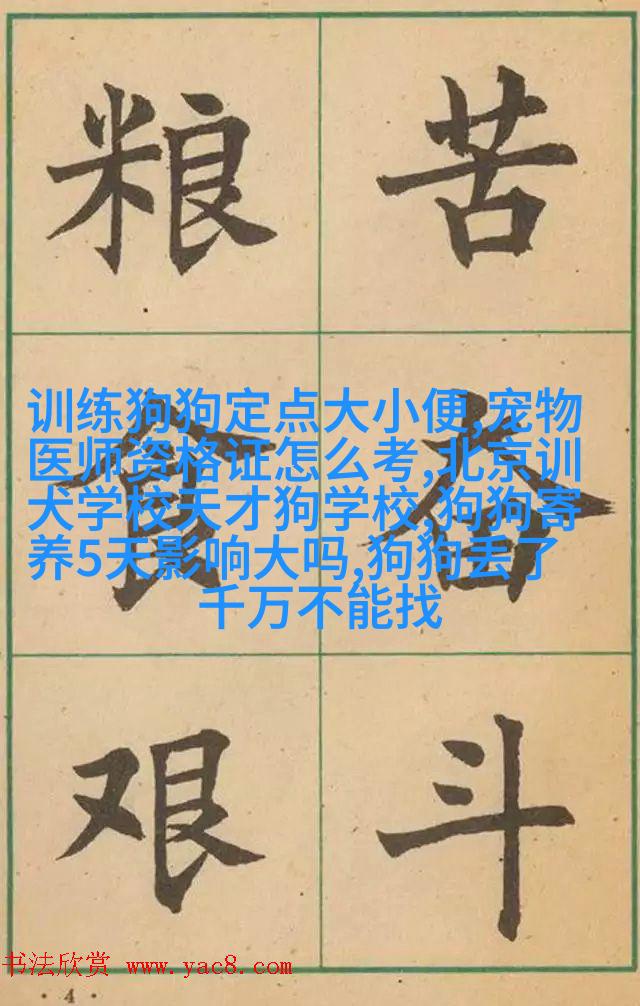 苦
奋
斗
粮
食
艰
训练狗狗定点大小便,宠物
医师资格证怎么考,北京训
犬学校天才狗学校,狗狗寄
养5天影响大吗,狗狗丢了
千万不能找
书法欣赏 www.yac8.com
·4·